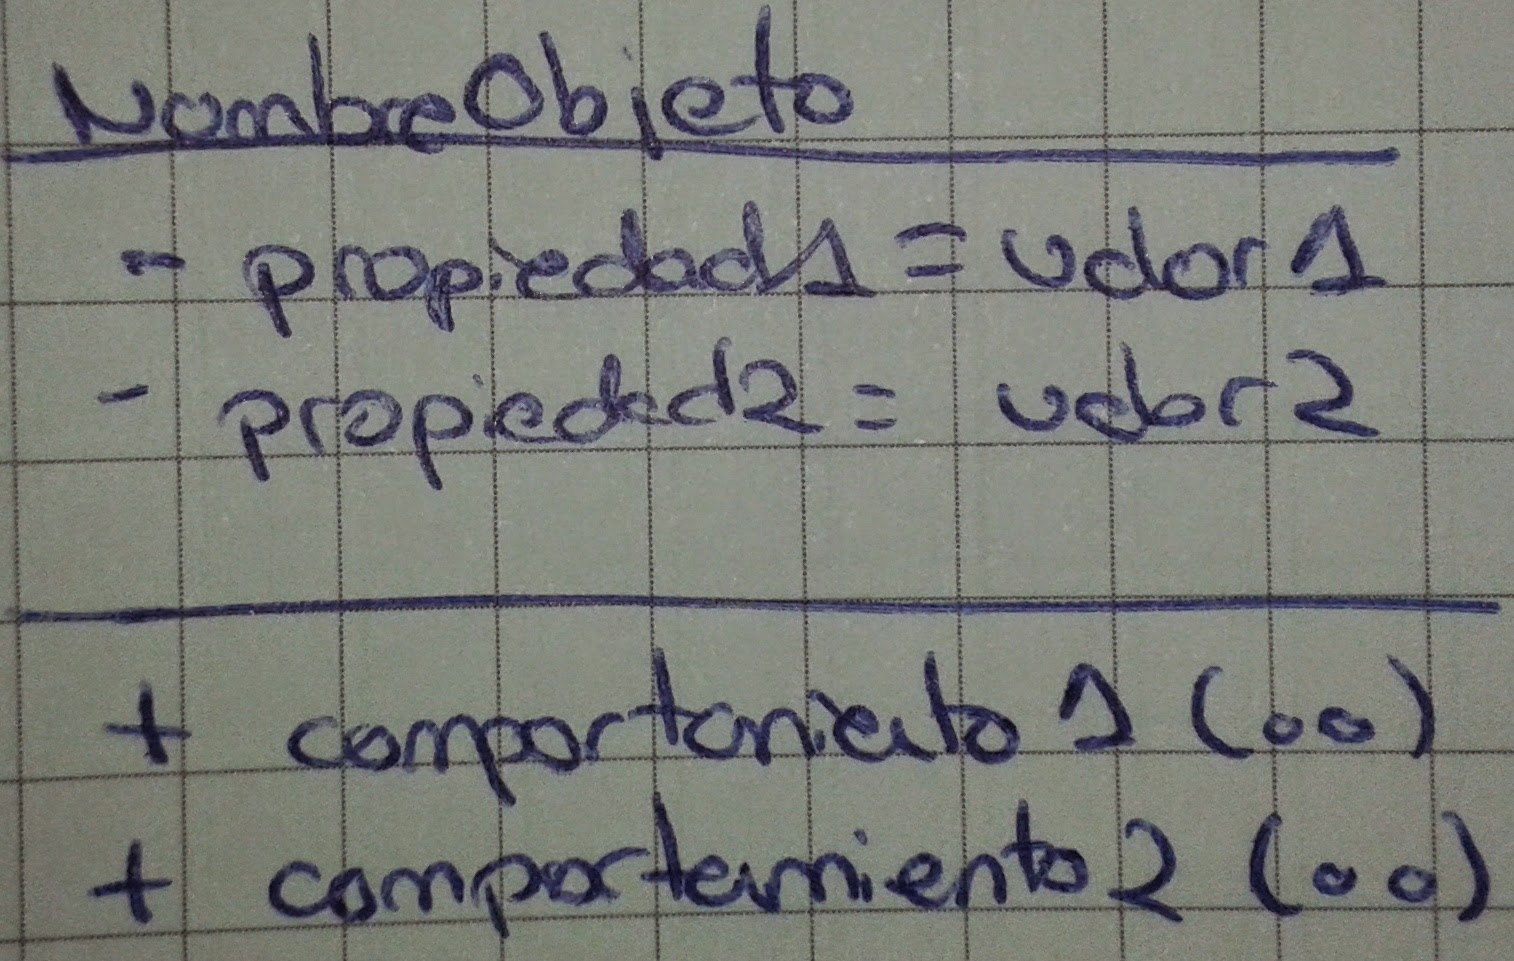 NombreObjeto
- propiedad1 = valor 1
- propiedad2 = valor 2
+ comportamiento 1 (..)
+ comportamiento 2 (..)